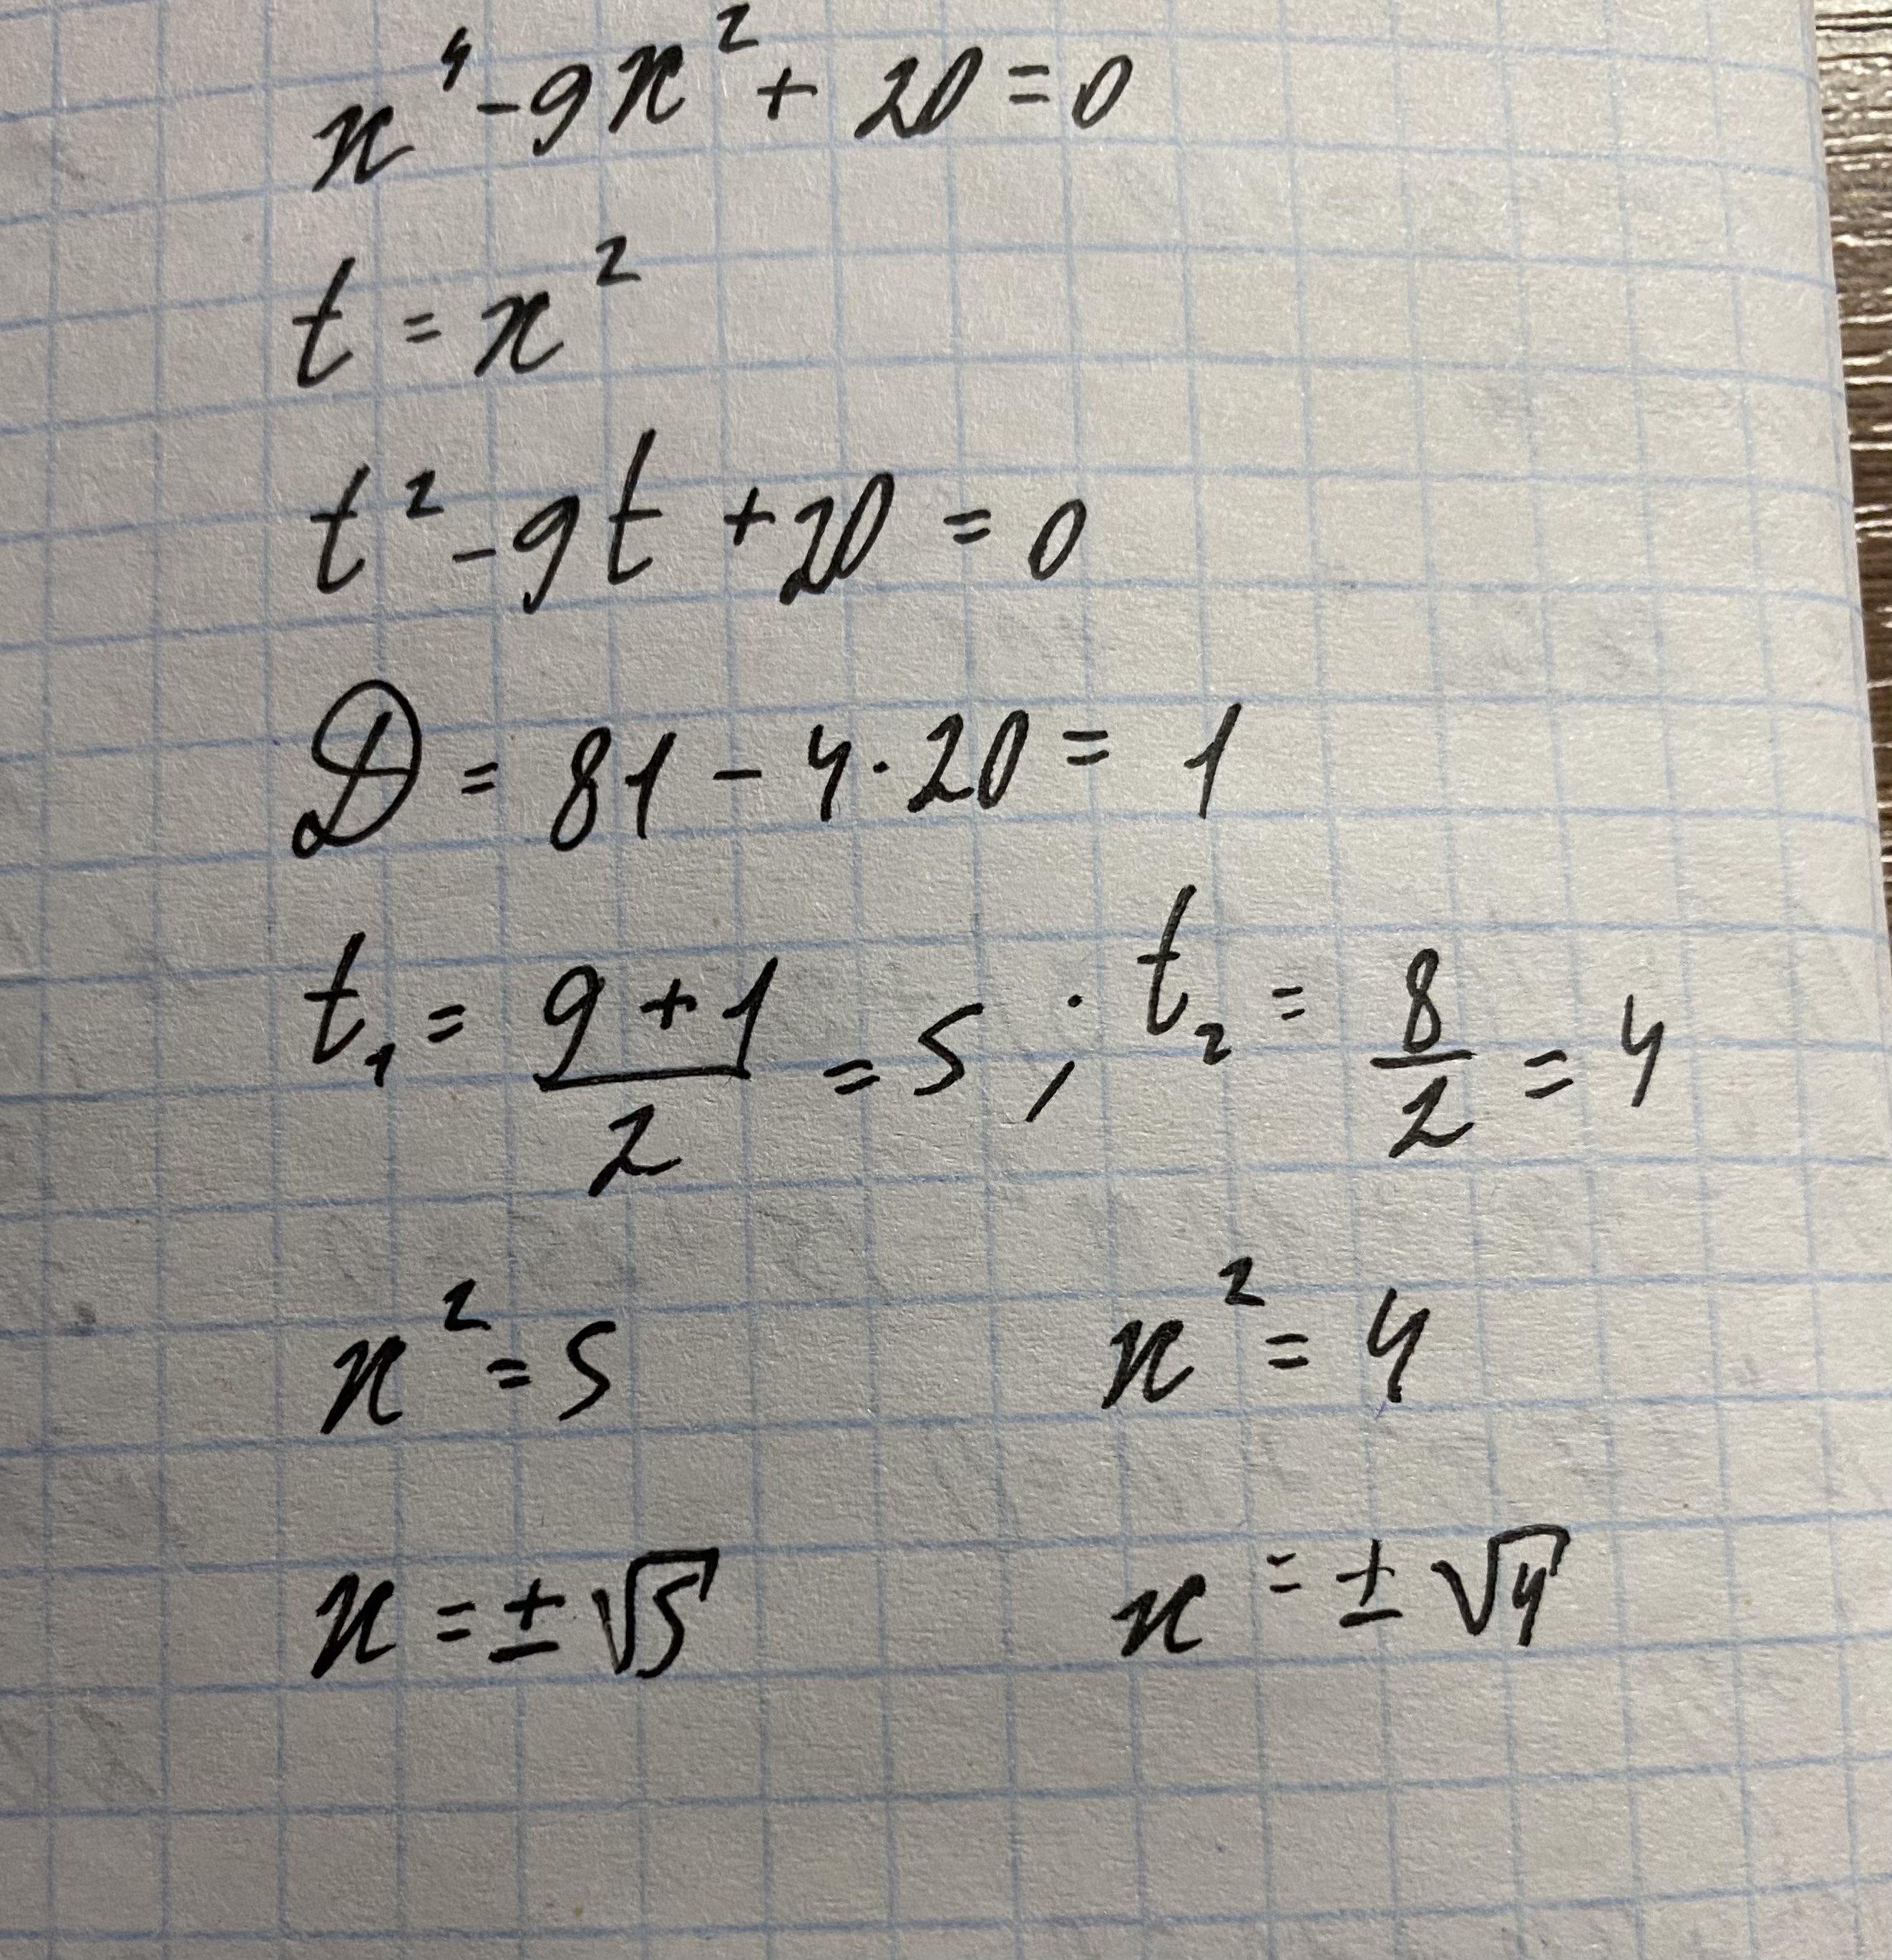 x⁴ - 9x² + 20 = 0
t = x²
t² - 9t + 20 = 0
D = 81 - 4 · 20 = 1
t₁ = (9 + 1)/2 = 5 ; t₂ = 8/2 = 4
x² = 5 x² = 4
x = ± √5 x = ± √4